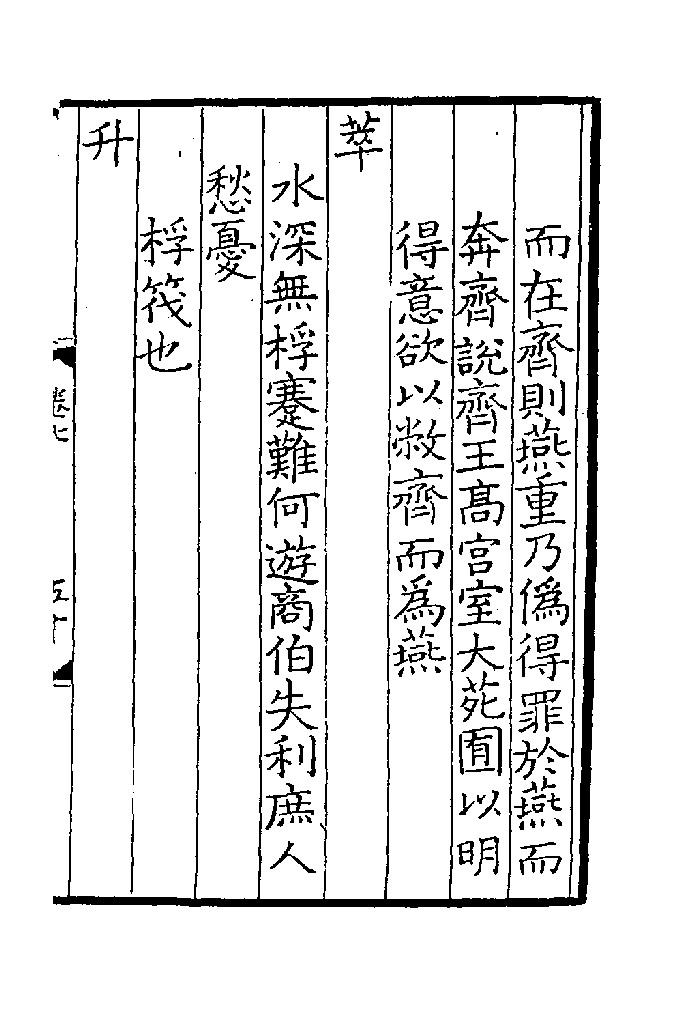 而在齊則燕重乃偽得罪於燕而
奔齊說齊王高宮室大苑囿以明
得意欲以敝齊而為燕
萃
水深無桴蹇難何遊商伯失利庶人
愁憂
桴筏也
升
卷七
五十